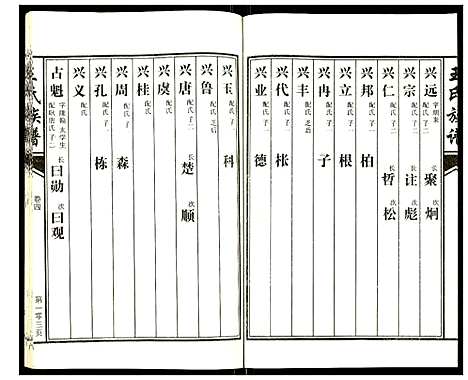 王氏族谱
兴远 字朋来 配氏 子二 长 聚 次 炯
兴宗 配氏 子二 长 注 次 彪
兴仁 配氏 子二 长 哲 次 松
兴邦 配氏 子一 柏
兴立 配氏 子一 根
兴冉 配氏 子一 子
兴丰 配氏 乏后
兴代 配氏 子一 枨
兴业 配氏 子一 德
兴玉 配氏 子一 科
兴鲁 配氏 乏后
兴唐 配氏 子二 长 楚 次 顺
兴虞 配氏
兴桂 配氏
兴周 配氏 子一 森
兴孔 配氏 子一 栋
兴义 配氏
占魁 太学生 子二 长 曰勋 次 曰观
王氏族谱
卷四
第一零三页